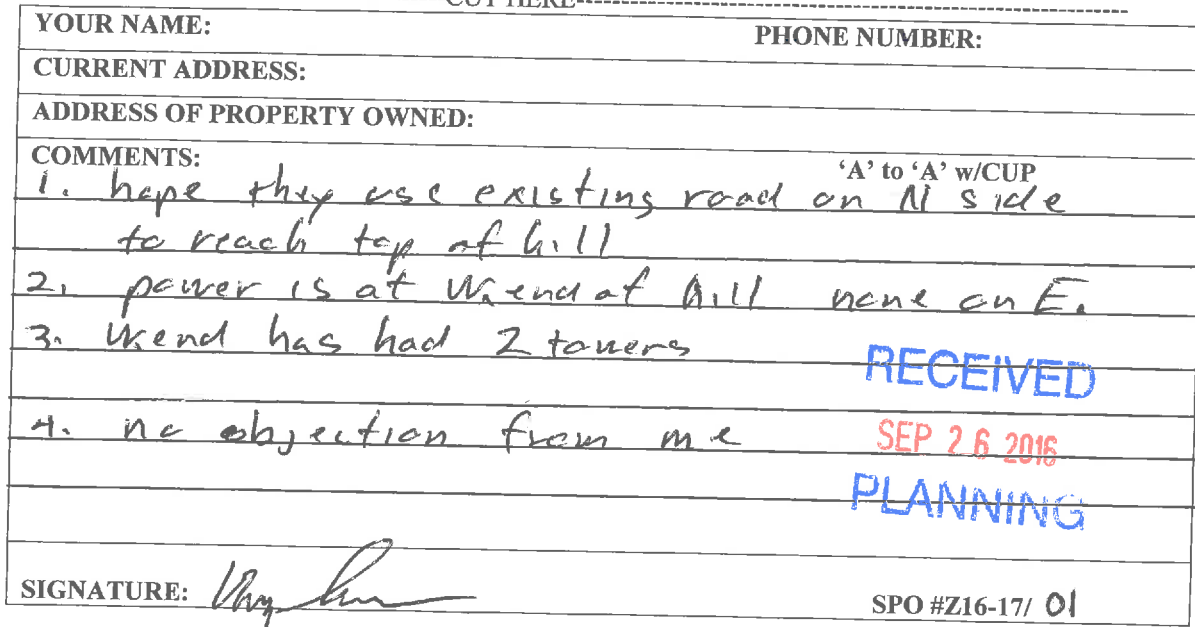 CUT HERE--------------------
YOUR NAME: PHONE NUMBER:
CURRENT ADDRESS:
ADDRESS OF PROPERTY OWNED:
COMMENTS: 'A' to 'A' w/CUP
1. hope they use existing road on N side
to reach top of hill
2. power is at W. end of hill none on E.
3. W. end has had 2 towers
RECEIVED
4. no objection from me
SEP 26 2016
PLANNING
SIGNATURE:
SPO #Z16-17/ 01